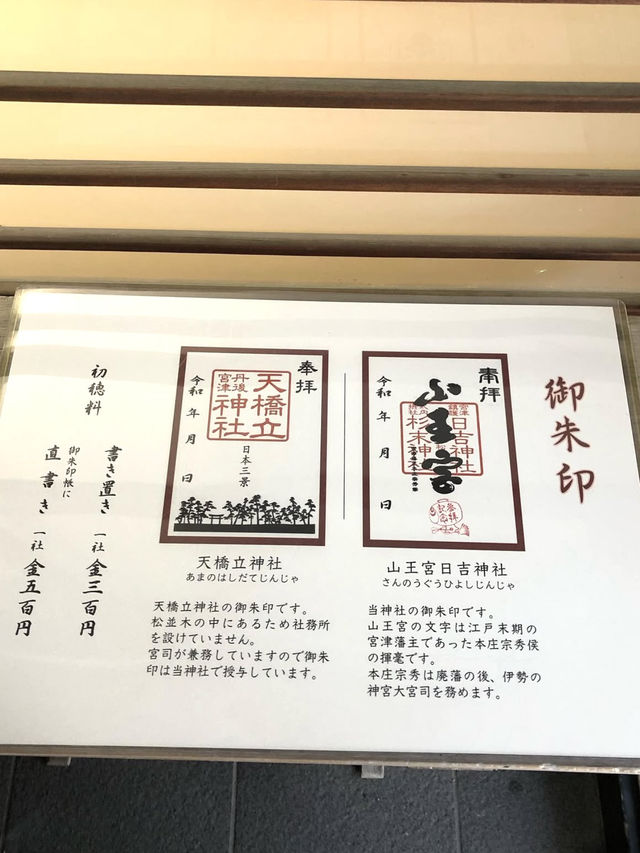 御朱印
奉拝
山王宮
宮津
鎮護
日吉神社
杉末神社
令和 年 月 日
参拝
記念
山王宮日吉神社
さんのうぐうひよしじんじゃ
当神社の御朱印です。
山王宮の文字は江戸末期の
宮津藩主であった本庄宗秀侯
の揮毫です。
本庄宗秀は廃藩の後、伊勢の
神宮大宮司を務めます。
奉拝
天橋立
神社
丹後
宮津
日本三景
令和 年 月 日
天橋立神社
あまのはしだてじんじゃ
天橋立神社の御朱印です。
松並木の中にあるため社務所
を設けていません。
宮司が兼務していますので御朱
印は当神社で授与しています。
初穂料
書き置き 一社 金三百円
御朱印帳に
直書き 一社 金五百円